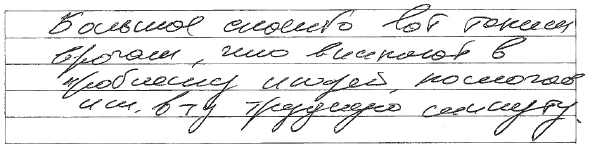 Большое спасибо вот таким
врачам, что вникают в
проблему людей, помогая
им в ту трудную минуту.